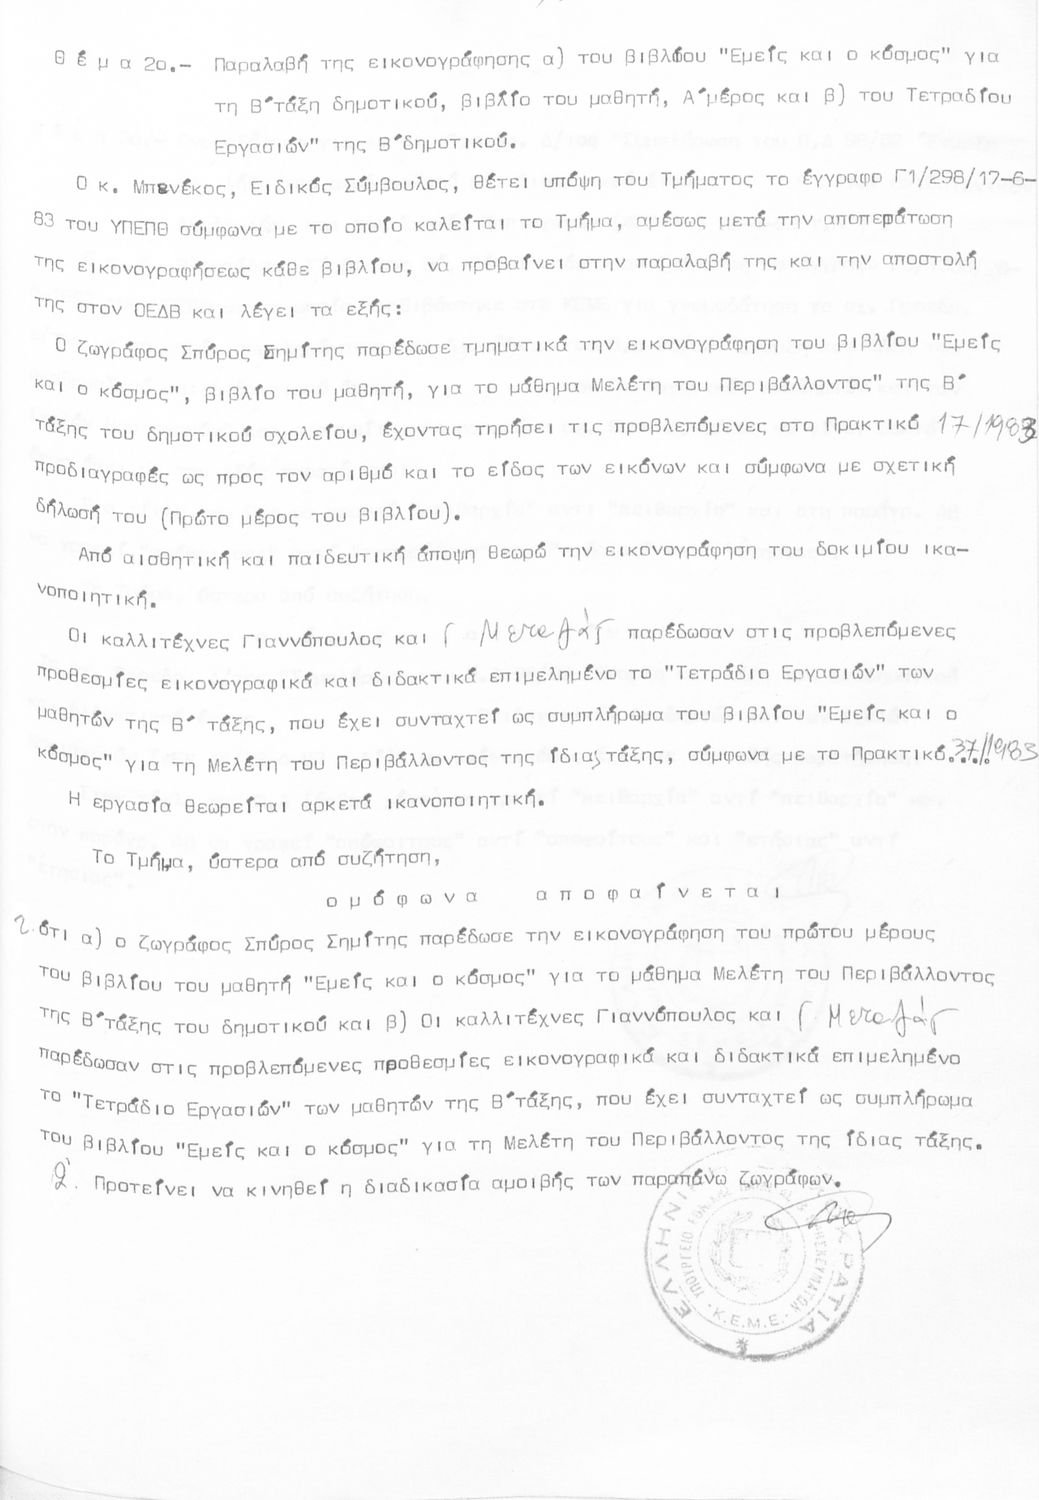 Θ έ μ α 2ο.- Παραλαβή της εικονογράφησης α) του βιβλίου "Εμείς και ο κόσμος" για
τη Β΄τάξη δημοτικού, βιβλίο του μαθητή, Α΄μέρος και β) του Τετραδίου
Εργασιών" της Β΄δημοτικού.
Ο κ. Μπενέκος, Ειδικός Σύμβουλος, θέτει υπόψη του Τμήματος το έγγραφο Γ1/298/17-6-
83 του ΥΠΕΠΘ σύμφωνα με το οποίο καλείται το Τμήμα, αμέσως μετά την αποπεράτωση
της εικονογραφήσεως κάθε βιβλίου, να προβαίνει στην παραλαβή της και την αποστολή
της στον ΟΕΔΒ και λέγει τα εξής:
Ο ζωγράφος Σπύρος Σημίτης παρέδωσε τμηματικά την εικονογράφηση του βιβλίου "Εμείς
και ο κόσμος", βιβλίο του μαθητή, για το μάθημα Μελέτη του Περιβάλλοντος" της Β΄
τάξης του δημοτικού σχολείου, έχοντας τηρήσει τις προβλεπόμενες στο Πρακτικό 17/1983
προδιαγραφές ως προς τον αριθμό και το είδος των εικόνων και σύμφωνα με σχετική
δήλωσή του (Πρώτο μέρος του βιβλίου).
Από αισθητική και παιδευτική άποψη θεωρώ την εικονογράφηση του δοκιμίου ικα-
νοποιητική.
Οι καλλιτέχνες Γιαννόπουλος και Γ. Μεταλάς παρέδωσαν στις προβλεπόμενες
προθεσμίες εικονογραφικά και διδακτικά επιμελημένο το "Τετράδιο Εργασιών" των
μαθητών της Β΄ τάξης, που έχει συνταχτεί ως συμπλήρωμα του βιβλίου "Εμείς και ο
κόσμος" για τη Μελέτη του Περιβάλλοντος της ίδιας τάξης, σύμφωνα με το Πρακτικό.37/1983
Η εργασία θεωρείται αρκετά ικανοποιητική.
Το Τμήμα, ύστερα από συζήτηση,
ο μ ό φ ω ν α α π ο φ α ί ν ε τ α ι
ότι α) ο ζωγράφος Σπύρος Σημίτης παρέδωσε την εικονογράφηση του πρώτου μέρους
του βιβλίου του μαθητή "Εμείς και ο κόσμος" για το μάθημα Μελέτη του Περιβάλλοντος
της Β΄τάξης του δημοτικού και β) Οι καλλιτέχνες Γιαννόπουλος και Γ. Μεταλάς
παρέδωσαν στις προβλεπόμενες προθεσμίες εικονογραφικά και διδακτικά επιμελημένο
το "Τετράδιο Εργασιών" των μαθητών της Β΄τάξης, που έχει συνταχτεί ως συμπλήρωμα
του βιβλίου "Εμείς και ο κόσμος" για τη Μελέτη του Περιβάλλοντος της ίδιας τάξης.
2. Προτείνει να κινηθεί η διαδικασία αμοιβής των παραπάνω ζωγράφων.
ΕΛΛΗΝΙΚΗ ΔΗΜΟΚΡΑΤΙΑ
Κ.Ε.Μ.Ε.